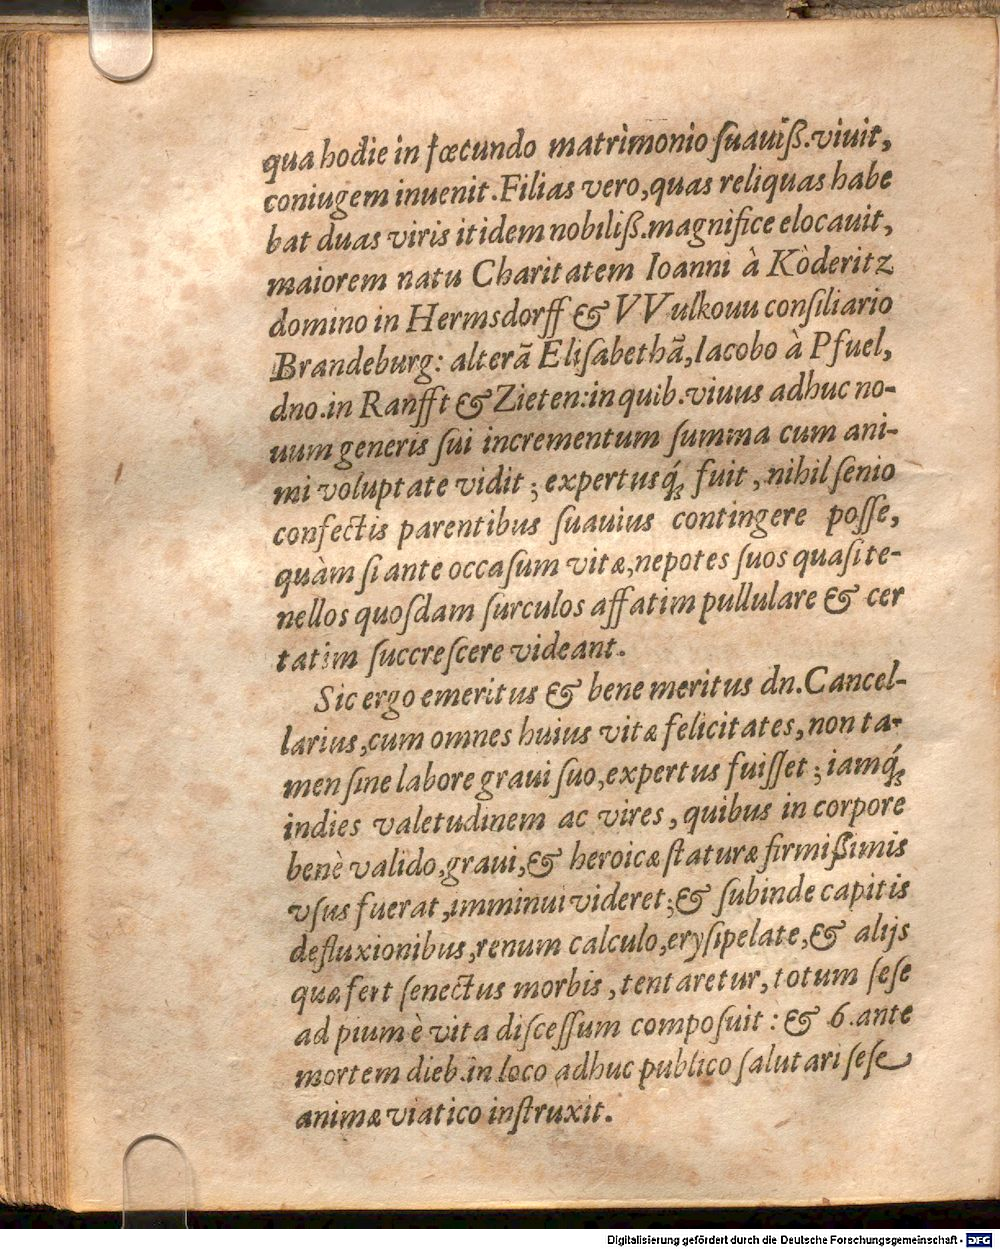 qua hodie in fœcundo matrimonio ſuauiß. viuit,
coniugem inuenit. Filias vero, quas reliquas habe
bat duas viris itidem nobiliß. magnifice elocauit,
maiorem natu Charitatem Ioanni à Kòderitz
domino in Hermsdorff & VVulkouu conſiliario
Brandeburg: alterã Eliſabethã, Iacobo à Pfuel,
dno. in Ranfft & Zieten: in quib. viuus adhuc no-
uum generis ſui incrementum ſumma cum ani-
mi voluptate vidit; expertusq́; fuit, nihil ſenio
confectis parentibus ſuauius contingere poſſe,
quàm ſi ante occaſum vitæ, nepotes ſuos quaſi te-
nellos quoſdam ſurculos affatim pullulare & cer
tatim ſuccreſcere videant.
Sic ergo emeritus & bene meritus dn. Cancel-
larius, cum omnes huius vitæ felicitates, non ta-
men ſine labore graui ſuo, expertus fuiſſet; iamq́;
indies valetudinem ac vires, quibus in corpore
benè valido, graui, & heroicæ ſtaturæ firmißimis
vſus fuerat, imminui videret; & ſubinde capitis
defluxionibus, renum calculo, eryſipelate, & alijs
quæ fert ſenectus morbis, tentaretur, totum ſeſe
ad pium è vita diſceſſum compoſuit: & 6. ante
mortem dieb. in loco adhuc publico ſalutari ſeſe
animæ viatico inſtruxit.
Digitalisierung gefördert durch die Deutsche Forschungsgemeinschaft - DFG